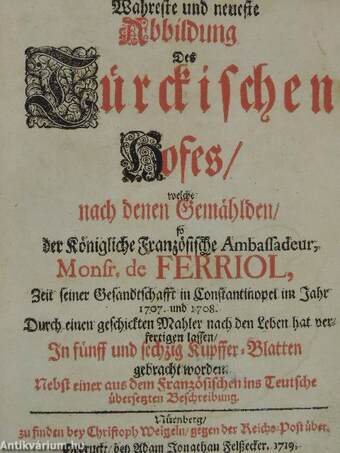 Wahreste und neueste
Abbildung
Des
Türckischen
Hofes/
welche
nach denen Gemählden/
so
der Königliche Französische Ambassadeur,
Monsr. de FERRIOL,
Zeit seiner Gesandtschafft in Constantinopel im Jahr
1707. und 1708.
Durch einen geschickten Mahler nach den Leben hat ver-
fertigen lassen/
In fünff und sechzig Kupffer-Blatten
gebracht worden.
Nebst einer aus dem Französischen ins Teutsche
übersetzten Beschreibung.
Nürnberg/
zu finden bey Christoph Weigeln/ gegen der Reichs-Post über.
Gedruckt/ bey Adam Jonathan Felßecker. 1719.
Antikvárium.hu
antikvarium.hu